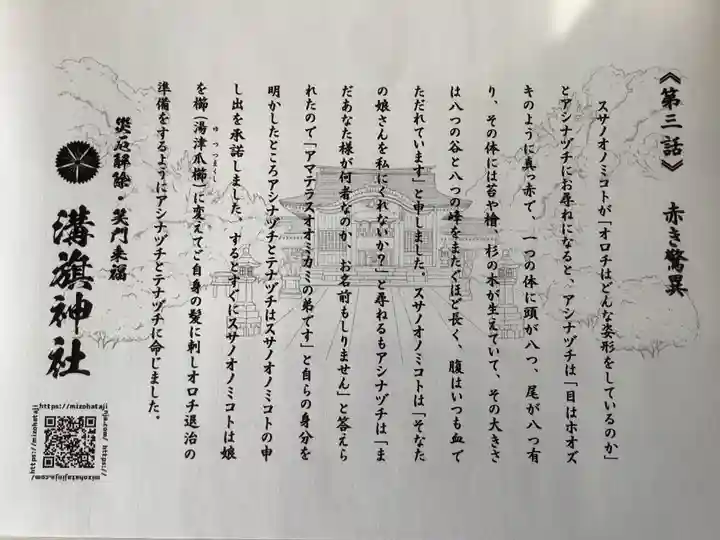 《第三話》 赤き驚異
スサノオノミコトが「オロチはどんな姿形をしているのか」
とアシナヅチにお尋ねになると、アシナヅチは「目はホオズ
キのように真っ赤で、一つの体に頭が八つ、尾が八つ有
り、その体には苔や檜、杉の木が生えていて、その大きさ
は八つの谷と八つの峰をまたぐほど長く、腹はいつも血で
ただれています」と申しました。スサノオノミコトは「そなた
の娘さんを私にくれないか?」と尋ねるもアシナヅチは「ま
だあなた様が何者なのか、お名前もしりません」と答えら
れたので「アマテラスオオミカミの弟です」と自らの身分を
明かしたところアシナヅチとテナヅチはスサノオノミコトの申
し出を承諾しました。するとすぐにスサノオノミコトは娘
を櫛(湯津爪櫛)に変えてご自身の髪に刺しオロチ退治の
ゆつつまぐし
準備をするようにアシナヅチとテナヅチに命じました。
災厄解除・笑門来福
溝旗神社
https://mizohataji
nja.com/ https://
mizohatajinja.com/
https://mizohata